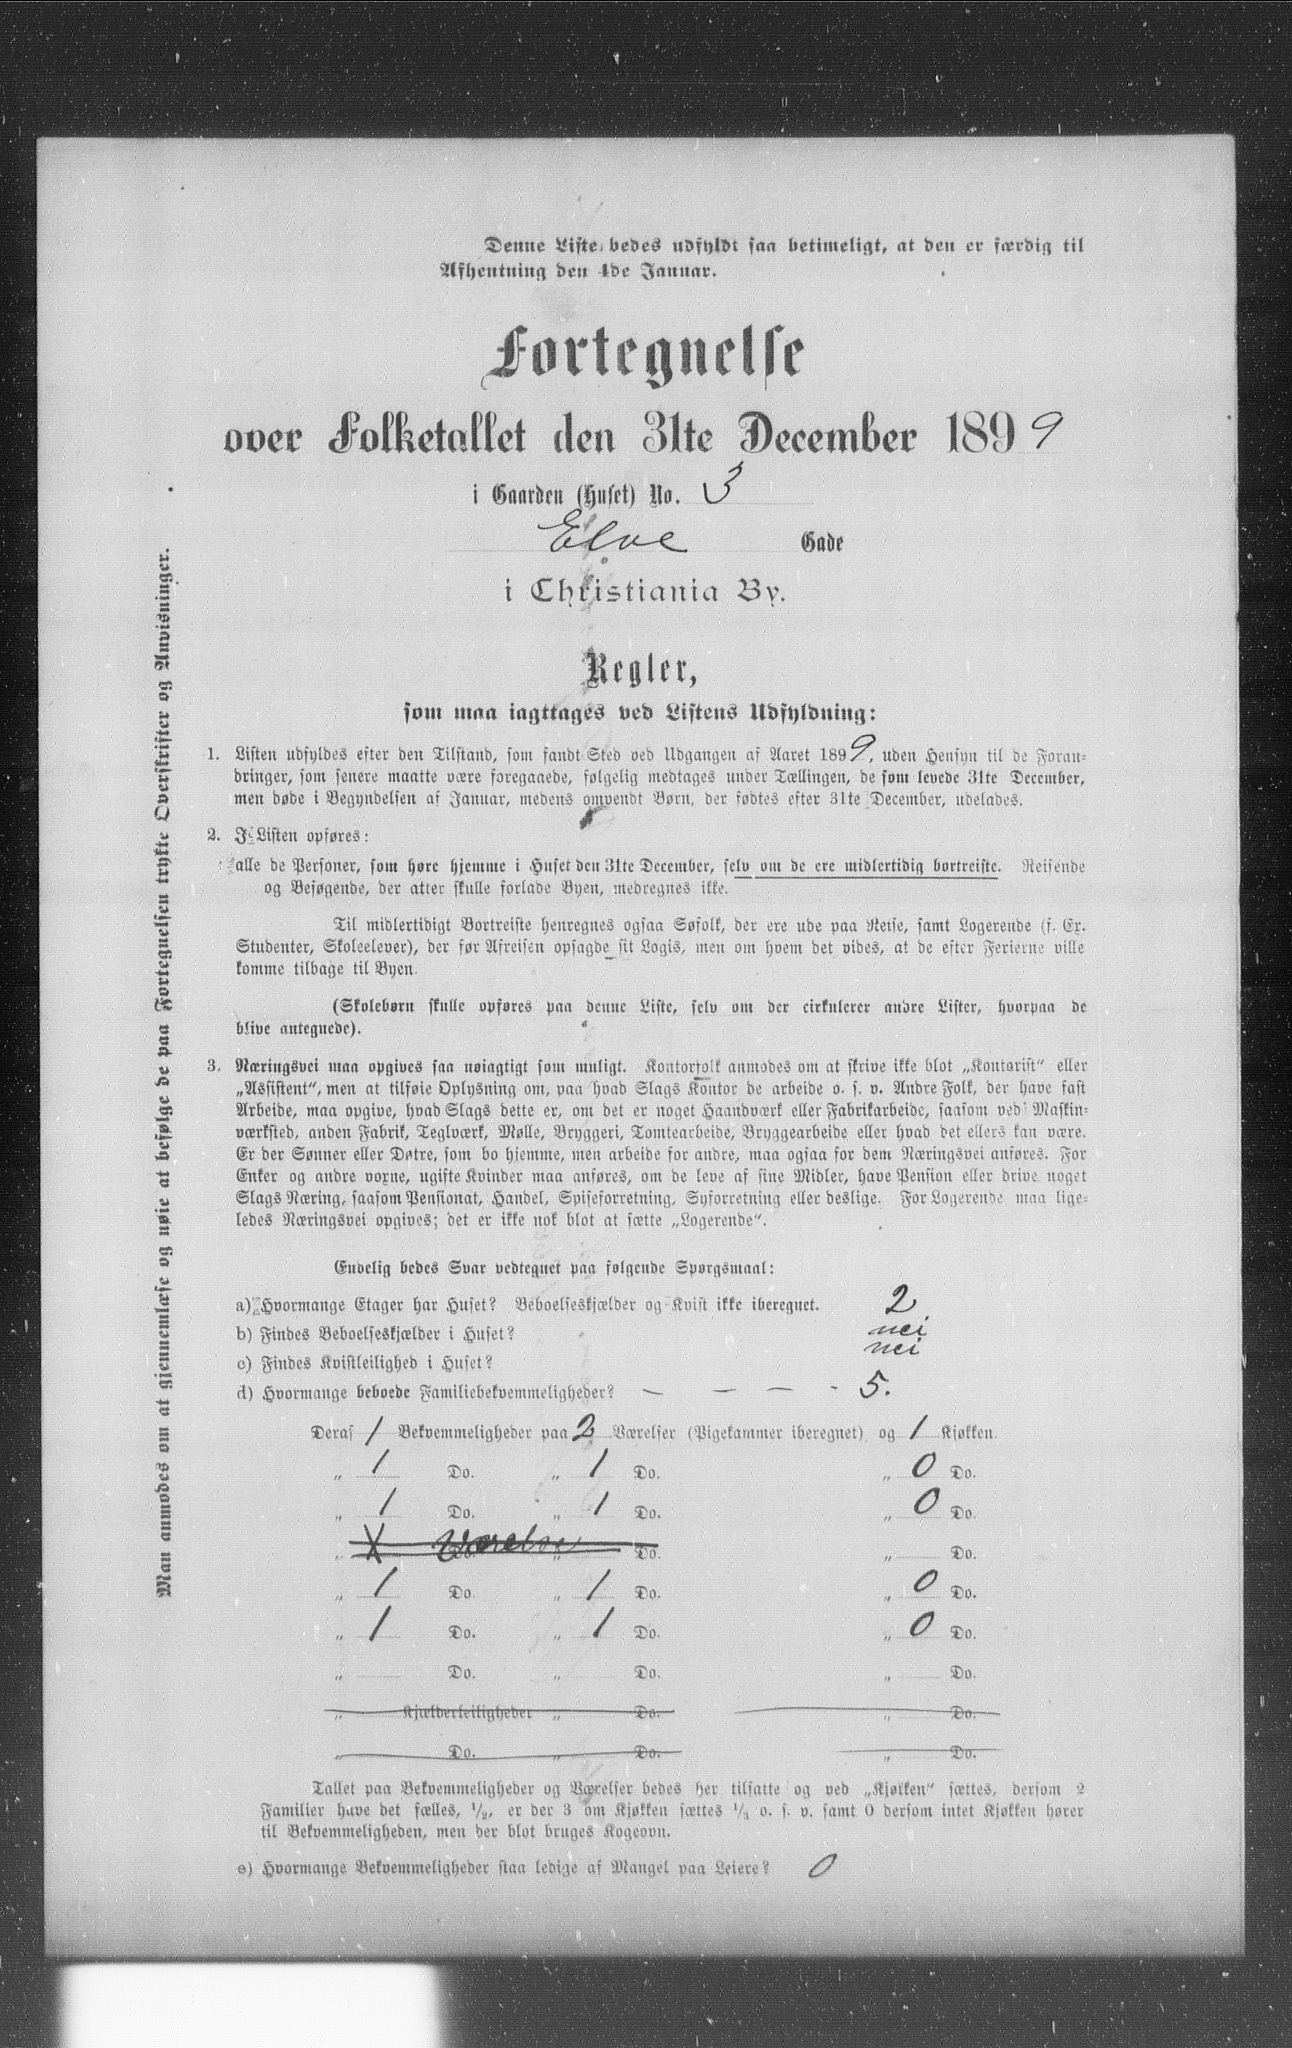 Denne Liste bedes udfyldt saa betimeligt, at den er færdig til
Afhentning den 4de Januar.
Fortegnelse
over Folketallet den 31te December 1899
i Gaarden (Huset) No. 3
Elve Gade
i Christiania By.
Regler,
som maa iagttages ved Listens Udfyldning:
1. Listen udfyldes efter den Tilstand, som fandt Sted ved Udgangen af Aaret 1899, uden Hensyn til de Foran-
dringer, som senere maatte være foregaaede, følgelig medtages under Tællingen, de som levede 31te December,
men døde i Begyndelsen af Januar, medens omvendt Børn, der fødtes efter 31te December, udelades.
2. I Listen opføres:
alle de Personer, som høre hjemme i Huset den 31te December, selv om de ere midlertidig bortreiste. Reisende
og Besøgende, der atter skulle forlade Byen, medregnes ikke.
Til midlertidigt Bortreiste henregnes ogsaa Søfolk, der ere ude paa Reise, samt Logerende (f. Ex.
Studenter, Skoleelever), der før Afreisen opsagde sit Logis, men om hvem det vides, at de efter Ferierne ville
komme tilbage til Byen.
(Skolebørn skulle opføres paa denne Liste, selv om der cirkulerer andre Lister, hvorpaa de
blive antegnede).
3. Næringsvei maa opgives saa nøiagtigt som muligt. Kontorfolk anmodes om at skrive ikke blot „Kontorist“ eller
„Assistent“, men at tilføie Oplysning om, paa hvad Slags Kontor de arbeide o. s. v. Andre Folk, der have fast
Arbeide, maa opgive, hvad Slags dette er, om det er noget Haandværk eller Fabrikarbeide, saasom ved Maskin-
værksted, anden Fabrik, Teglværk, Mølle, Bryggeri, Tomtearbeide, Bryggearbeide eller hvad det ellers kan være.
Er der Sønner eller Døtre, som bo hjemme, men arbeide for andre, maa ogsaa for dem Næringsvei anføres. For
Enker og andre voxne, ugifte Kvinder maa anføres, om de leve af sine Midler, have Pension eller drive noget
Slags Næring, saasom Pensionat, Handel, Spiseforretning, Syforretning eller deslige. For Logerende maa lige-
ledes Næringsvei opgives; det er ikke nok blot at sætte „Logerende“.
Endelig bedes Svar vedtegnet paa følgende Spørgsmaal:
a) Hvormange Etager har Huset? Beboelseskjælder og Kvist ikke iberegnet. 2
b) Findes Beboelseskjælder i Huset? nei
c) Findes Kvistleilighed i Huset? nei
d) Hvormange beboede Familiebekvemmeligheder? — — — - 5.
Deraf 1 Bekvemmeligheder paa 2 Værelser (Pigekammer iberegnet) og 1 Kjøkken.
„ 1 Do. „ 1 Do. „ 0 Do.
„ 1 Do. „ 1 Do. „ 0 Do.
„ Do. „ Do. „ Do.
„ 1 Do. „ 1 Do. „ 0 Do.
„ 1 Do. „ 1 Do. „ 0 Do.
„ Do. „ Do. „ Do.
„ Kjælderleiligheder „ Do. „ Do.
„ Do. „ Do. „ Do.
Tallet paa Bekvemmeligheder og Værelser bedes her tilsatte og ved „Kjøkken“ sættes, dersom 2
Familier have det fælles, 1/2, er der 3 om Kjøkken sættes 1/3 o. s. v. samt 0 dersom intet Kjøkken hører
til Bekvemmeligheden, men der blot bruges Kogeovn.
e) Hvormange Bekvemmeligheder staa ledige af Mangel paa Leiere? 0
Man anmodes om at gjennemlæse og nøie at befølge de paa Fortegnelsen trykte Overskrifter og Anvisninger.